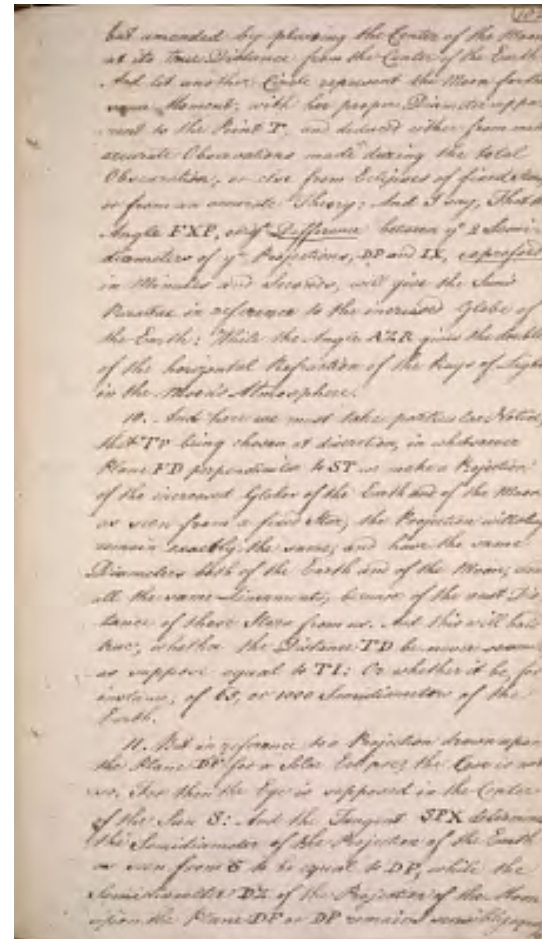 but amended by placing the Center of the Moon
at its true Distance from the Center of the Earth
And let another Circle represent the Moon for the
same Moment, with her proper Diameter appa-
rent to the Point T, and deduced either from most
accurate Observations made during the total
Obscuration, or else from Eclipses of fixed Stars
or from an accurate Theory; And I say, That the
Angle FXP, or yᵉ Difference between yᵉ 2 Semi-
diameters of yᵉ Projections, DP and IX, expressed
in Minutes and Seconds, will give the Sun's
Parallax in reference to the increased Globe of
the Earth: While the Angle AZR gives the double
of the horizontal Refraction of the Rays of Light
in the Moon's Atmosphere.
10. And here we must take particular Notice,
that being chosen at discretion, in whatsoever
Plane FD perpendicular to ST we make a Projection
of the increased Globe of the Earth and of the Moon
as seen from a fixed Star, the Projection will
remain exactly the same, and have the same
Diameters both of the Earth and of the Moon, and
all the same because of the vast Dis-
tance of these Stars from us. And this will hold
true, whether the Distance TD be never
as suppose equal to TI: Or whether it be, for
instance, of 65, or 1000 Semidiameters of the
Earth.
11. But in reference to a Projection drawn upon
the Plane DP for a Solar Eclipse, the Case is not
so. For then the Eye is supposed in the Center
of the Sun S: And the Tangent SPX determines
the Semidiameter of the Projection of the Earth
as seen from S to be equal to DP, while the
Semidiameter DZ of the Projection of the Moon
upon the Plane DF or DP remains sensibly